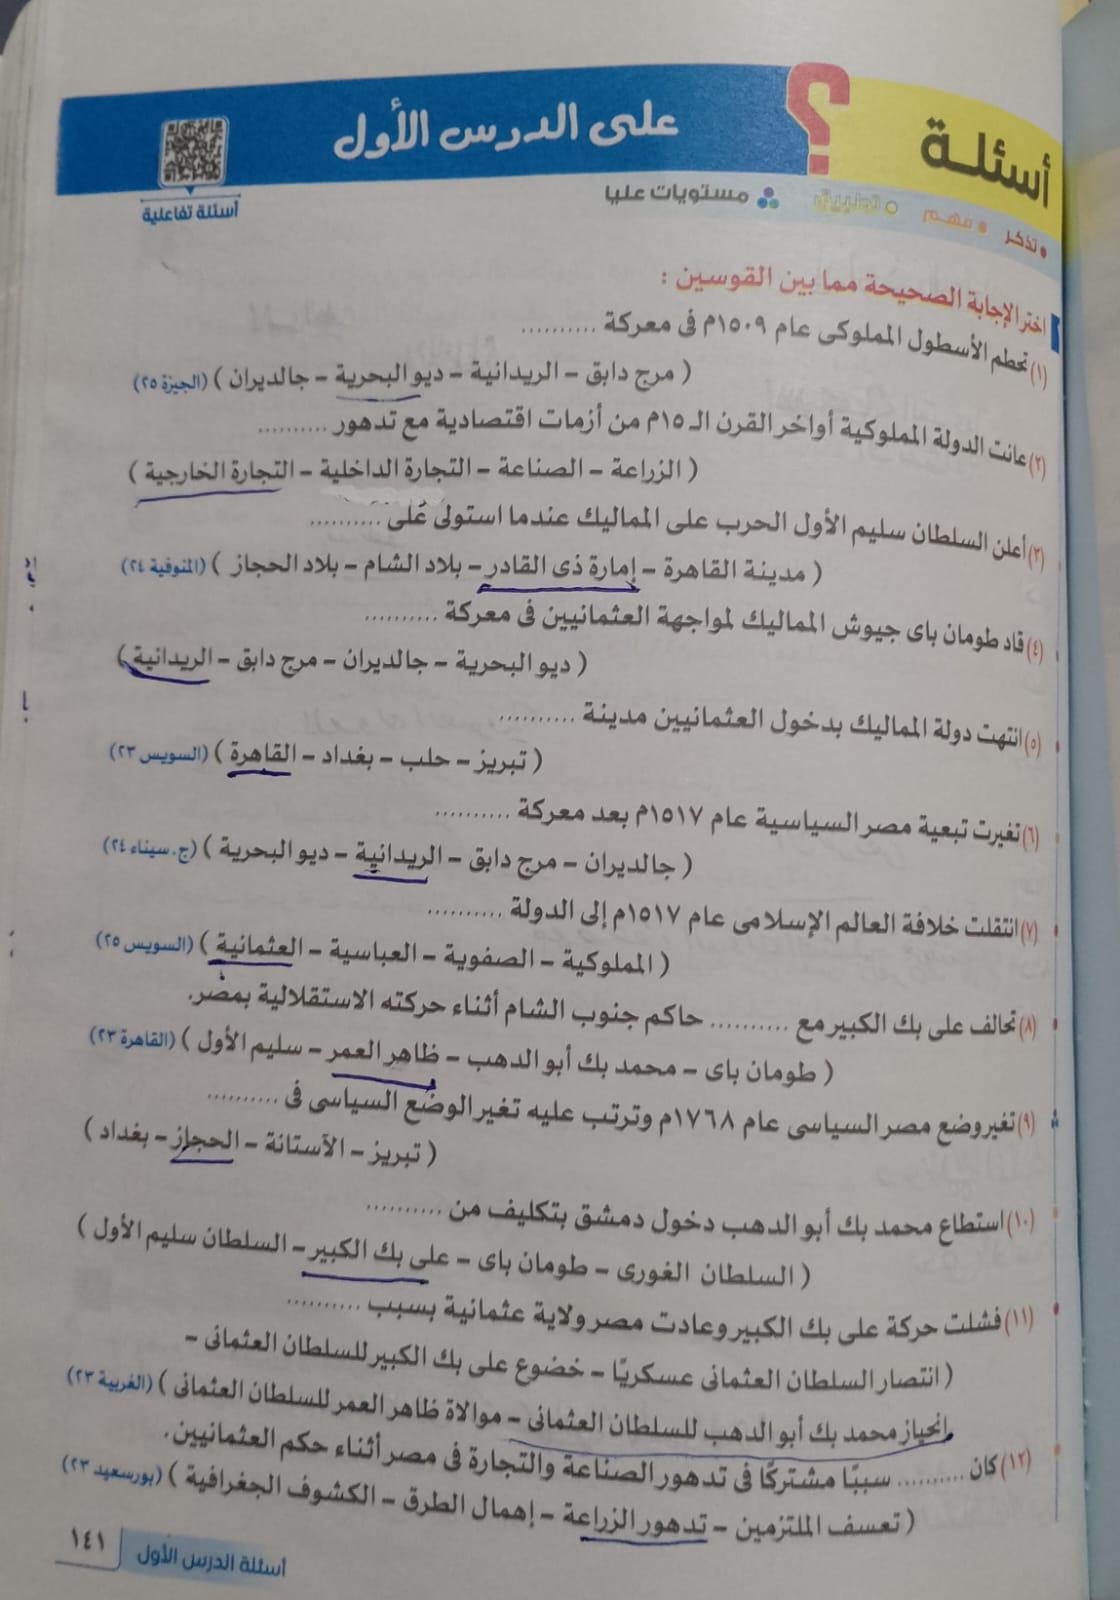 أسئلة
؟
على الدرس الأول
أسئلة تفاعلية
• تذكر • فهم • تطبيق مستويات عليا
اختر الإجابة الصحيحة مما بين القوسين :
(١) تحطم الأسطول المملوكى عام ١٥٠٩م فى معركة ..........
( مرج دابق – الريدانية – ديو البحرية – جالديران ) (الجيزة ٢٥)
(٢) عانت الدولة المملوكية أواخر القرن الـ ١٥م من أزمات اقتصادية مع تدهور ..........
( الزراعة – الصناعة – التجارة الداخلية – التجارة الخارجية )
(٣) أعلن السلطان سليم الأول الحرب على المماليك عندما استولى على ..........
( مدينة القاهرة – إمارة ذى القادر – بلاد الشام – بلاد الحجاز ) (المنوفية ٢٤)
(٤) قاد طومان باى جيوش المماليك لمواجهة العثمانيين فى معركة ..........
( ديو البحرية – جالديران – مرج دابق – الريدانية )
(٥) انتهت دولة المماليك بدخول العثمانيين مدينة ..........
( تبريز – حلب – بغداد – القاهرة ) (السويس ٢٣)
(٦) تغيرت تبعية مصر السياسية عام ١٥١٧م بعد معركة ..........
( جالديران – مرج دابق – الريدانية – ديو البحرية ) (ج. سيناء ٢٤)
(٧) انتقلت خلافة العالم الإسلامى عام ١٥١٧م إلى الدولة ..........
( المملوكية – الصفوية – العباسية – العثمانية ) (السويس ٢٥)
(٨) تحالف على بك الكبير مع .......... حاكم جنوب الشام أثناء حركته الاستقلالية بمصر.
( طومان باى – محمد بك أبو الدهب – ظاهر العمر – سليم الأول ) (القاهرة ٢٣)
(٩) تغير وضع مصر السياسى عام ١٧٦٨م وترتب عليه تغير الوضع السياسى فى ..........
( تبريز – الآستانة – الحجاز – بغداد )
(١٠) استطاع محمد بك أبو الدهب دخول دمشق بتكليف من ..........
( السلطان الغورى – طومان باى – على بك الكبير – السلطان سليم الأول )
(١١) فشلت حركة على بك الكبير وعادت مصر ولاية عثمانية بسبب ..........
( انتصار السلطان العثمانى عسكريًا – خضوع على بك الكبير للسلطان العثمانى –
انحياز محمد بك أبو الدهب للسلطان العثمانى – موالاة ظاهر العمر للسلطان العثمانى ) (الغربية ٢٣)
(١٢) كان .......... سببًا مشتركًا فى تدهور الصناعة والتجارة فى مصر أثناء حكم العثمانيين.
( تعسف الملتزمين – تدهور الزراعة – إهمال الطرق – الكشوف الجغرافية ) (بورسعيد ٢٣)
أسئلة الدرس الأول
١٤١